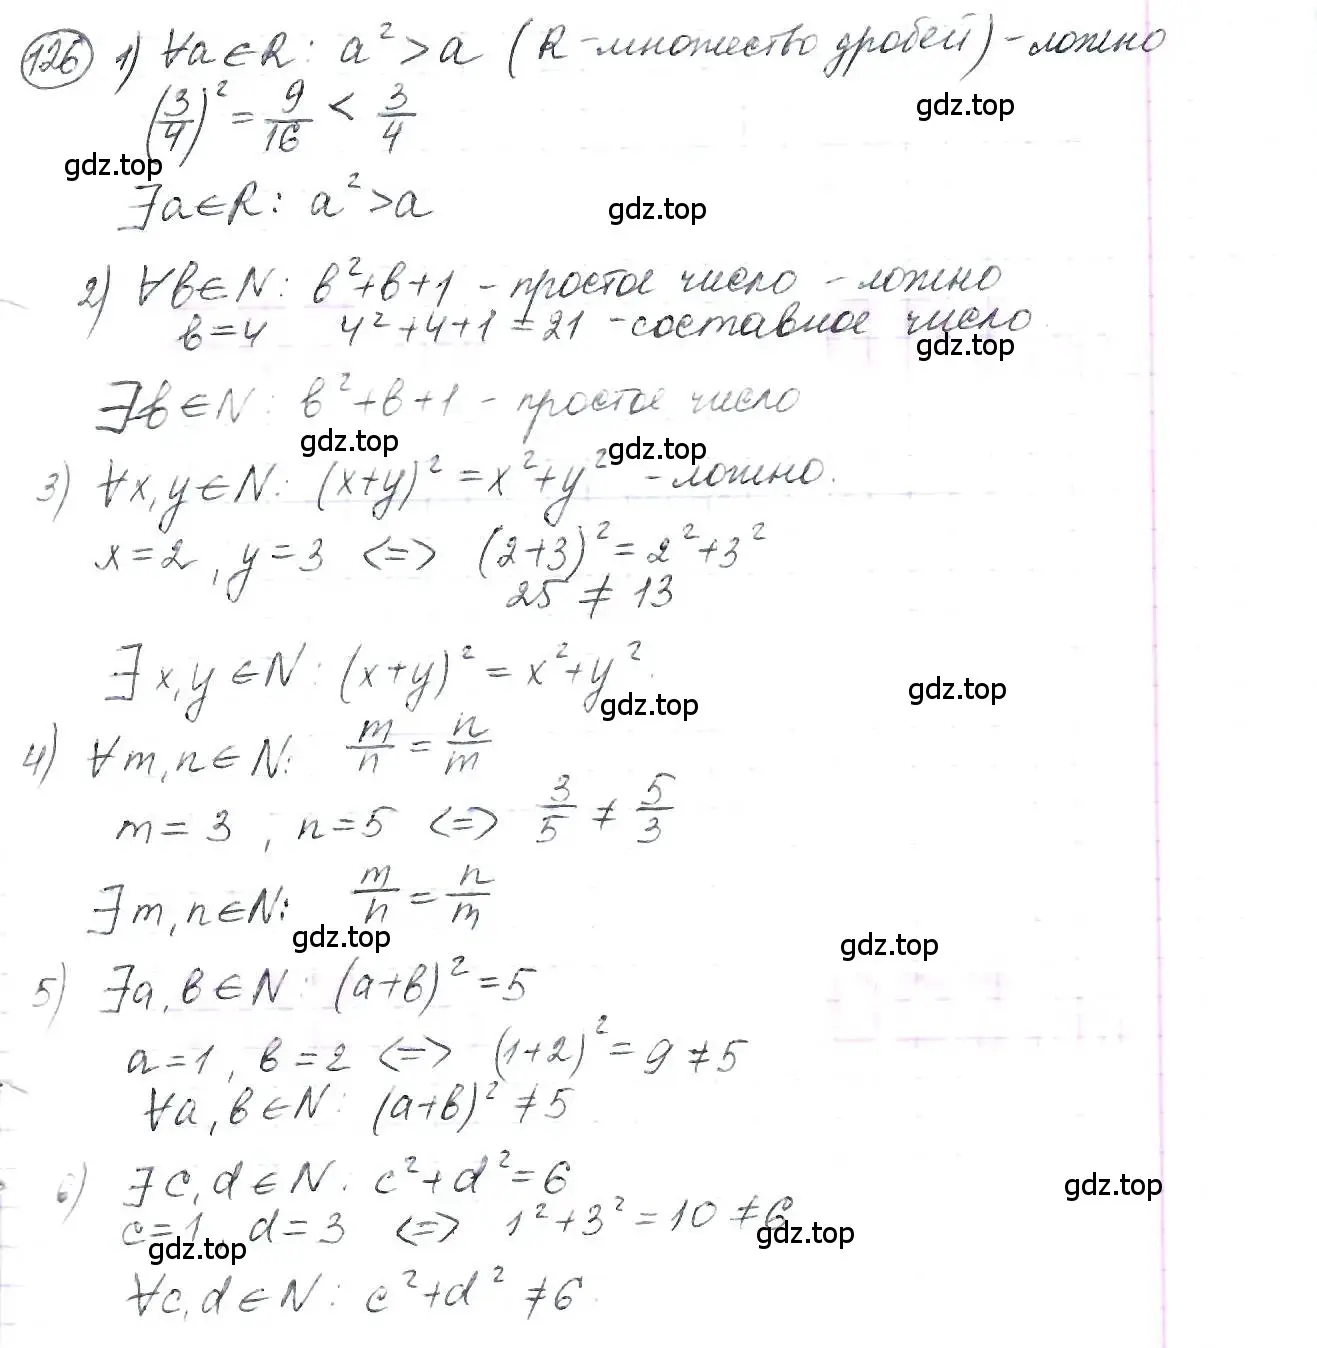 126 1) ∀a∈R: a² > a (R - множество дробей) - ложно
gdz.top
(3/4)² = 9/16 < 3/4
gdz.top
∃a∈R: a² > a gdz.top
2) ∀в∈N: в²+в+1 - простое число - ложно
в=4 4²+4+1=21 - составное число
gdz.top
∃в∈N: в²+в+1 - простое число
gdz.top gdz.top
3) ∀x,y∈N: (x+y)² = x²+y² - ложно.
x=2, y=3 <=> (2+3)² = 2²+3²
25 ≠ 13
∃x,y∈N: (x+y)² = x²+y².
gdz.top gdz.top
4) ∀m,n∈N: m/n = n/m
m=3, n=5 <=> 3/5 ≠ 5/3
∃m,n∈N: m/n = n/m
gdz.top gdz.top
5) ∃a,в∈N: (a+в)² = 5
a=1, в=2 <=> (1+2)² = 9 ≠ 5
∀a,в∈N: (a+в)² ≠ 5
6) ∃c,d∈N: c²+d² = 6
gdz.top
c=1, d=3 <=> 1²+3² = 10 ≠ 6
gdz.top gdz.top
∀c,d∈N: c²+d² ≠ 6.